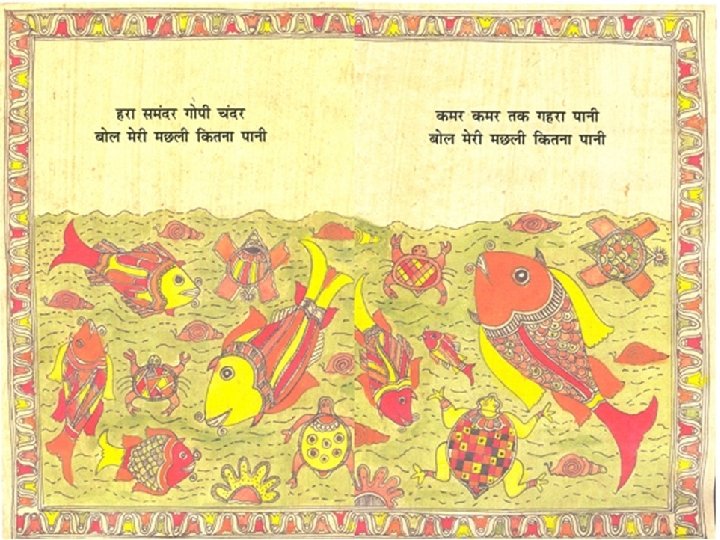 हरा समंदर गोपी चंदर
बोल मेरी मछली कितना पानी
कमर कमर तक गहरा पानी
बोल मेरी मछली कितना पानी